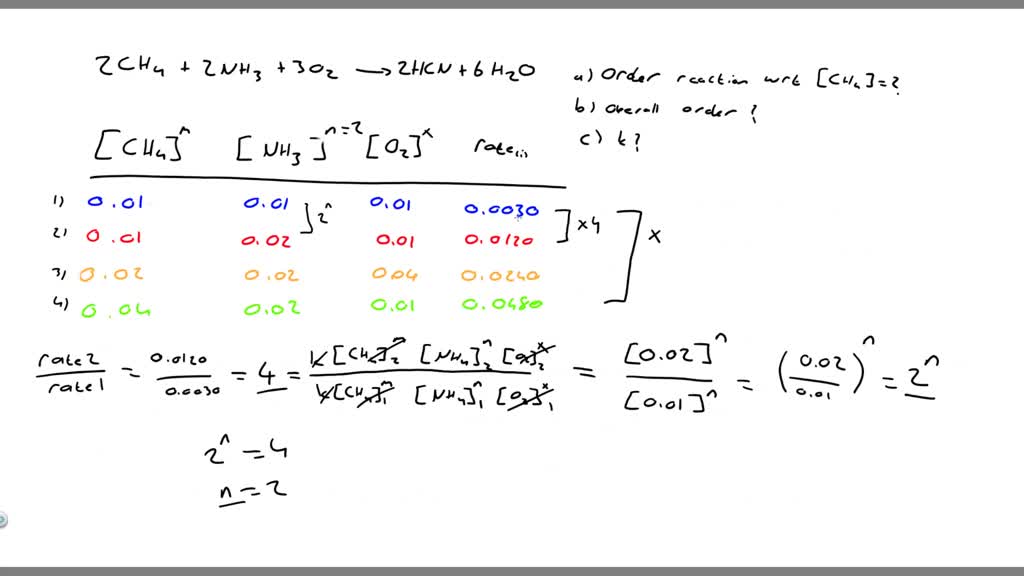 2CH₄ + 2NH₃ + 3O₂ → 2HCN + 6H₂O
a) Order reaction wrt [CH₄]=?
b) Overall order?
c) k?
[CH₄]ᵐ [NH₃]ⁿ⁼² [O₂]ˣ rate
1) 0.01 0.01 0.01 0.0030
2) 0.01 0.02 0.01 0.0120
3) 0.02 0.02 0.04 0.0240
4) 0.04 0.02 0.01 0.0480
]2ⁿ ]x4 ]x
rate2/rate1 = 0.0120/0.0030 = 4 = k[CH₄]₂ᵐ [NH₄]₂ⁿ [O₂]₂ˣ / k[CH₄]₁ᵐ [NH₄]₁ⁿ [O₂]₁ˣ = [0.02]ⁿ/[0.01]ⁿ = (0.02/0.01)ⁿ = 2ⁿ
2ⁿ = 4
n = 2